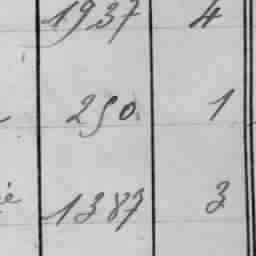 1937 4
250 1
1387 3